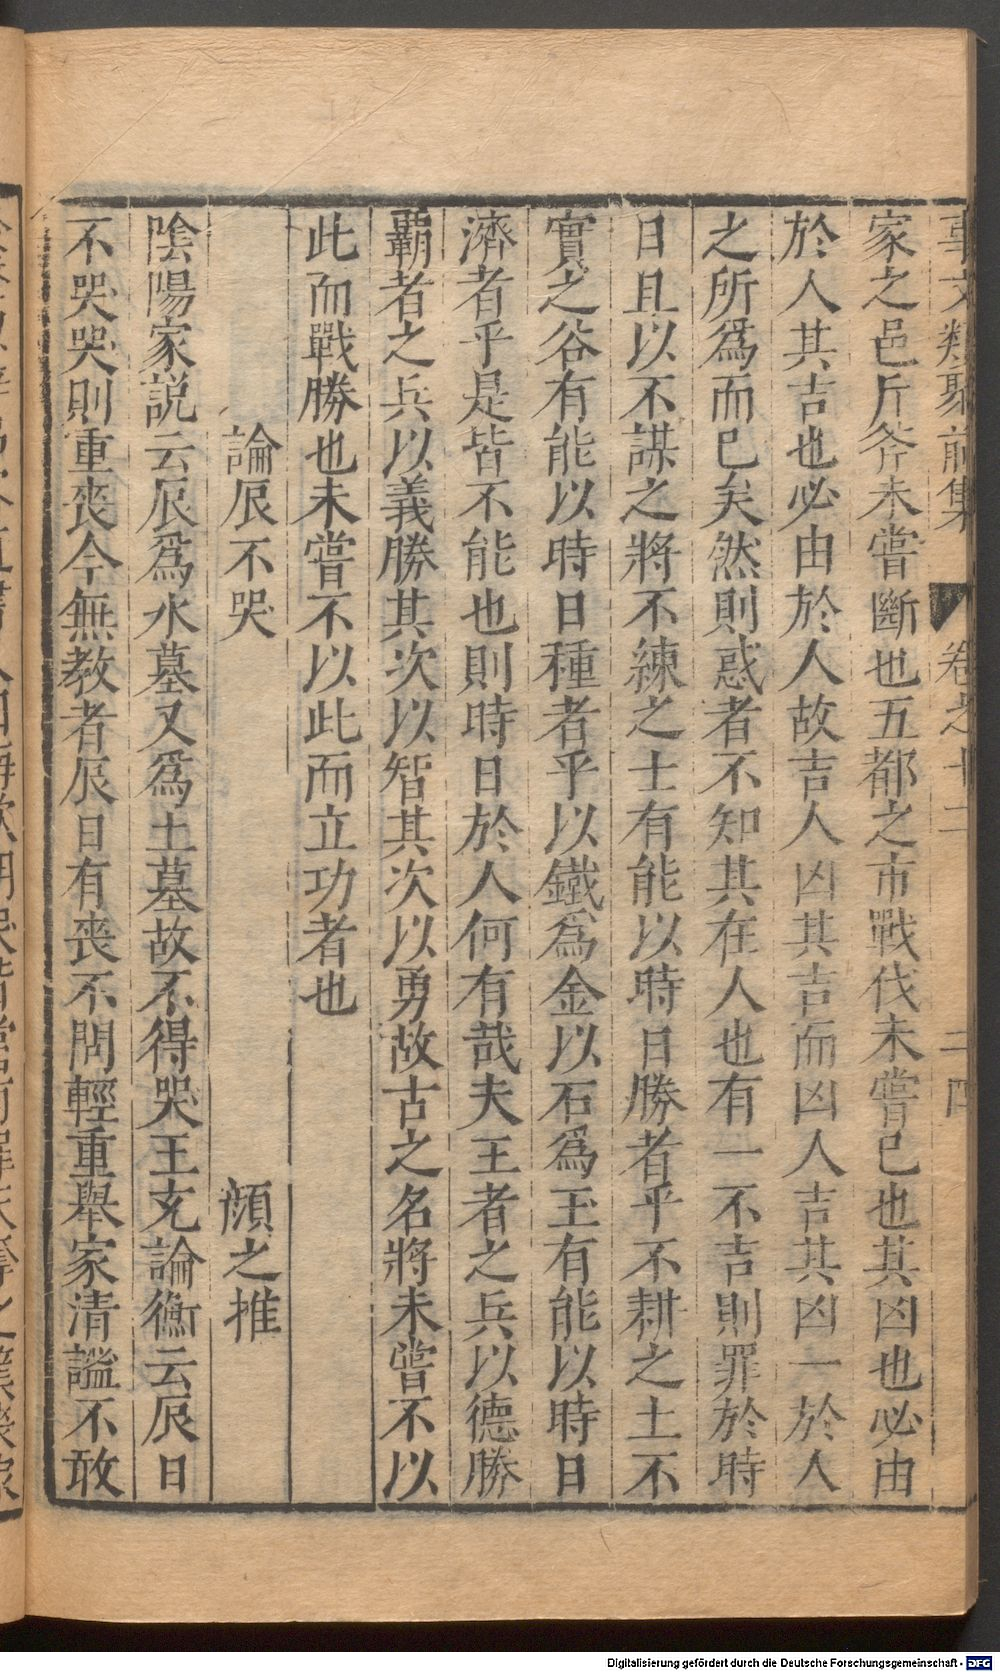 事文類聚前集 卷之十二 二四
家之邑斤斧未嘗斷也五都之市戰伐未嘗已也其凶也必由
於人其吉也必由於人故吉人凶其吉而凶人吉其凶一於人
之所爲而已矣然則惑者不知其在人也有一不吉則罪於時
日且以不謀之將不練之士有能以時日勝者乎不耕之土不
實之谷有能以時日種者乎以鐵爲金以石爲玉有能以時日
濟者乎是皆不能也則時日於人何有哉夫王者之兵以德勝
霸者之兵以義勝其次以智其次以勇故古之名將未嘗不以
此而戰勝也未嘗不以此而立功者也
論辰不哭 顔之推
陰陽家説云辰爲水墓又爲土墓故不得哭王充論衡云辰日
不哭哭則重喪今無教者辰日有喪不問輕重舉家清謐不敢
Digitalisierung gefördert durch die Deutsche Forschungsgemeinschaft - DFG